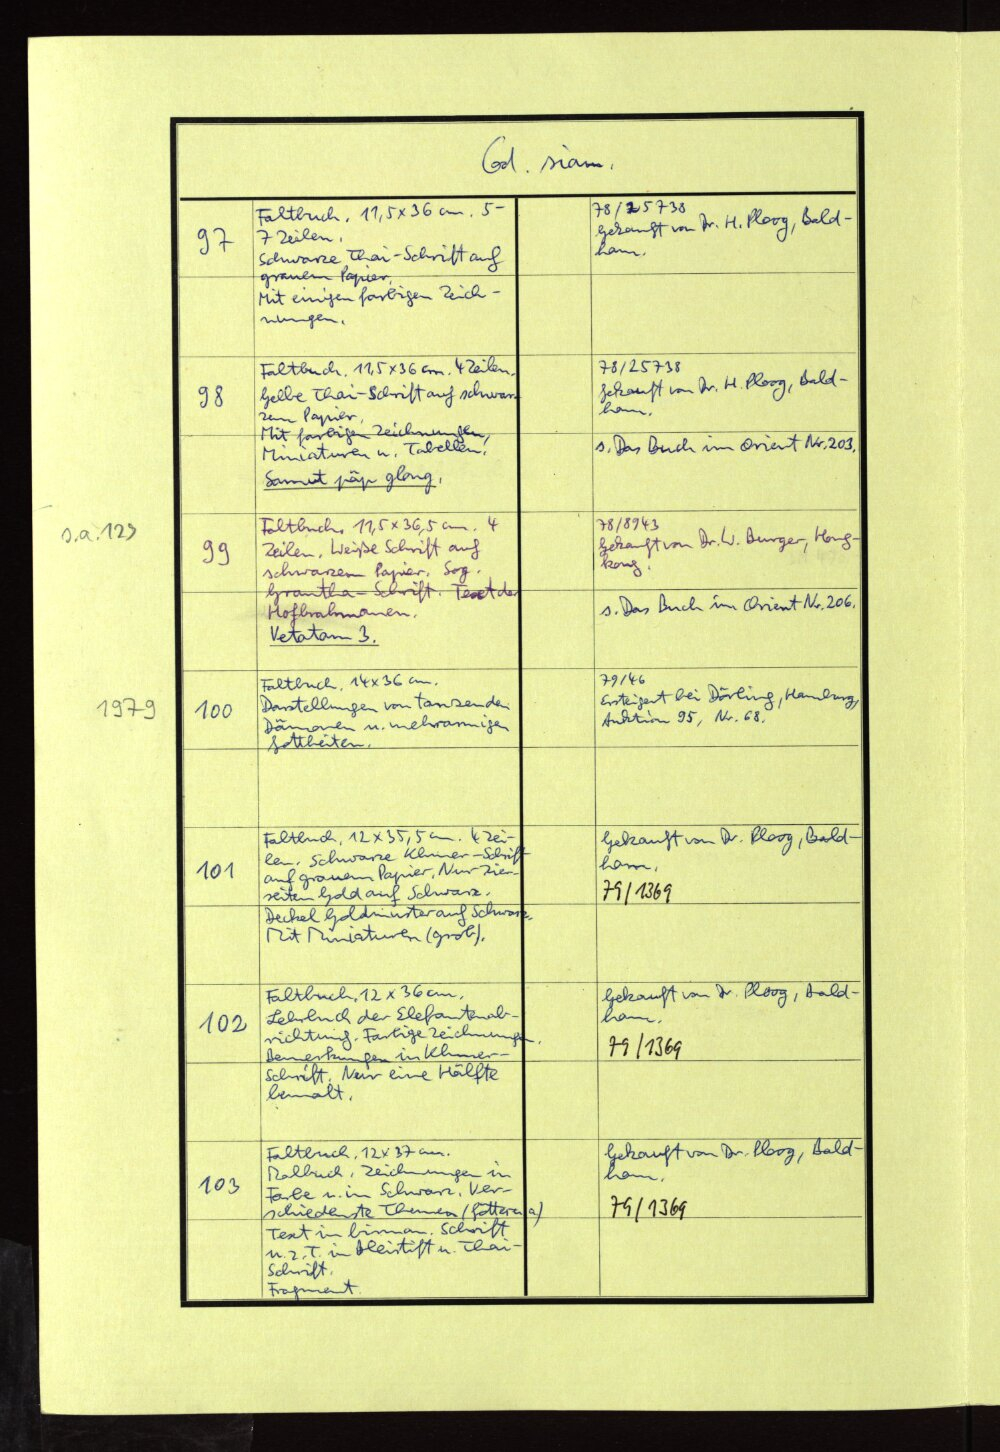 Cod. siam.
97
Faltbuch. 11,5 x 36 cm. 5-
7 Zeilen.
Schwarze Thai-Schrift auf
grauem Papier.
Mit einigen farbigen Zeich-
nungen.
78/25738
Gekauft von Dr. H. Ploog, Bald-
ham.
98
Faltbuch. 11,5 x 36 cm. 4 Zeilen.
Gelbe Thai-Schrift auf schwar-
zem Papier.
Mit farbigen Zeichnungen,
Miniaturen u. Tabellen.
Samut pāp glong.
78/25738
Gekauft von Dr. H. Ploog, Bald-
ham.
s. Das Buch im Orient Nr. 203.
s.a. 129
99
Faltbuch. 11,5 x 36,5 cm. 4
Zeilen. Weiße Schrift auf
schwarzem Papier. Sog.
Grantha-Schrift. Text der
Hofbrahmanen.
Vetatam 3.
78/8943
Gekauft von Dr. W. Burger, Hong-
kong.
s. Das Buch im Orient Nr. 206.
1979
100
Faltbuch. 14 x 36 cm.
Darstellungen von tanzenden
Dämonen u. mehrarmigen
Gottheiten.
79/46
Ersteigert bei Dörling, Hamburg,
Auktion 95, Nr. 68.
101
Faltbuch. 12 x 35,5 cm. 4 Zei-
len. Schwarze Khmer-Schrift
auf grauem Papier, Nur Zier-
seiten Gold auf Schwarz.
Deckel Goldmuster auf Schwarz.
Mit Miniaturen (grob).
Gekauft von Dr. Ploog, Bald-
ham.
79/1369
102
Faltbuch. 12 x 36 cm.
Lehrbuch der Elefantenab-
richtung. Farbige Zeichnungen.
Bemerkungen in Khmer-
Schrift. Nur eine Hälfte
bemalt.
Gekauft von Dr. Ploog, Bald-
ham.
79/1369
103
Faltbuch. 12 x 37 cm.
Malbuch. Zeichnungen in
Farbe u. in Schwarz. Ver-
schiedenste Themen (Götter u.a)
Text in birman. Schrift
u. z. T. in Bleistift u. Thai-
Schrift.
Fragment.
Gekauft von Dr. Ploog, Bald-
ham.
79/1369